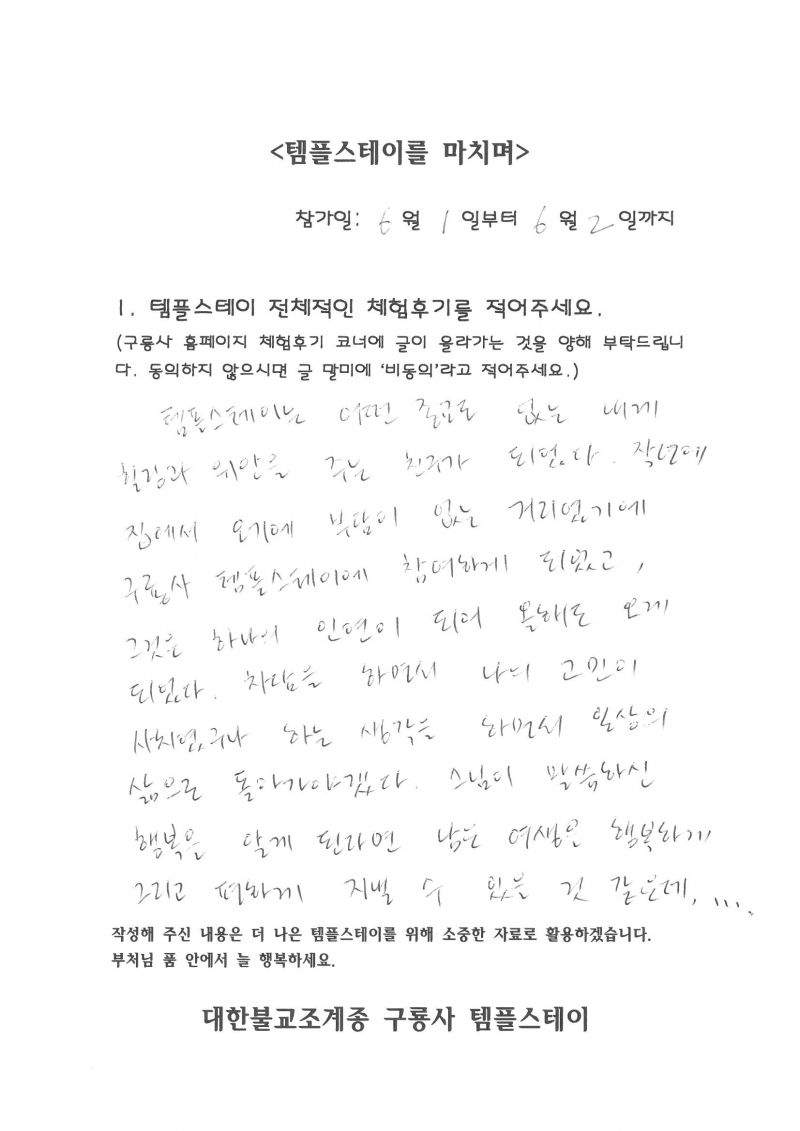 <템플스테이를 마치며>
참가일: 6 월 1 일부터 6 월 2 일까지
1. 템플스테이 전체적인 체험후기를 적어주세요.
(구룡사 홈페이지 체험후기 코너에 글이 올라가는 것을 양해 부탁드립니
다. 동의하지 않으시면 글 말미에 '비동의'라고 적어주세요.)
템플스테이는 어떤 종교도 없는 내게
힐링과 위안을 주는 친구가 되었다. 작년에
집에서 오기에 부담이 없는 거리였기에
구룡사 템플스테이에 참여하게 되었고,
그것은 하나의 인연이 되어 올해도 오게
되었다. 차담을 하면서 나의 고민이
사치였구나 하는 생각을 하면서 일상의
삶으로 돌아가야겠다. 스님이 말씀하신
행복을 알게 된다면 남은 여생은 행복하게
그리고 편하게 지낼 수 있을 것 같은데, ....
작성해 주신 내용은 더 나은 템플스테이를 위해 소중한 자료로 활용하겠습니다.
부처님 품 안에서 늘 행복하세요.
대한불교조계종 구룡사 템플스테이